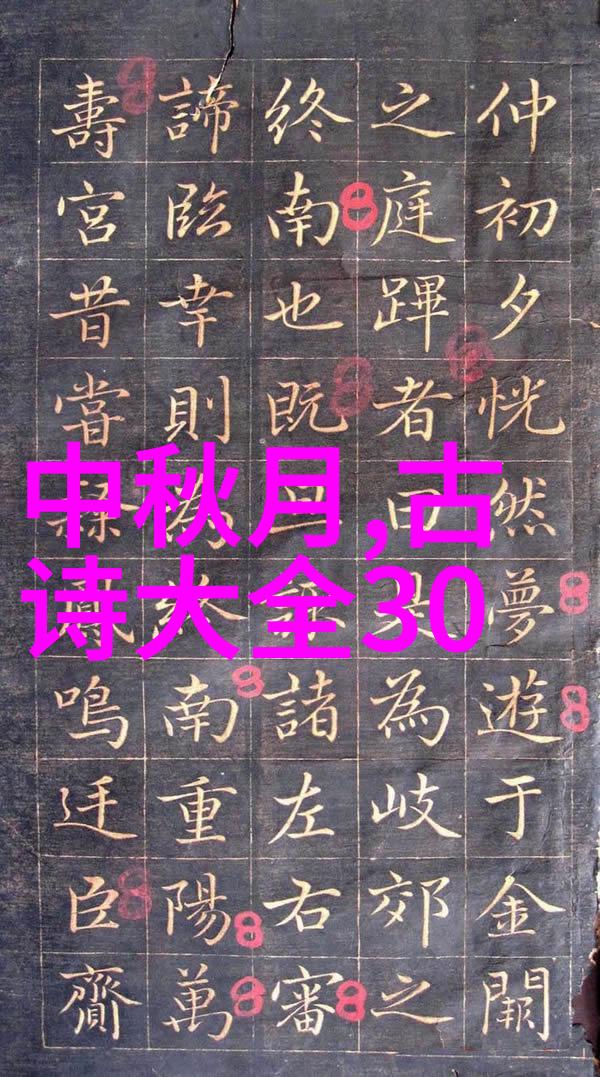 中秋月,古
诗大全30
仲初夕恍然夢遊于金闕
之庭蹕者曰是為岐郊之
終南也既且諸左右審
諦臨幸則為終南重陽萬
壽宮昔嘗鳳鳴廷臣齎